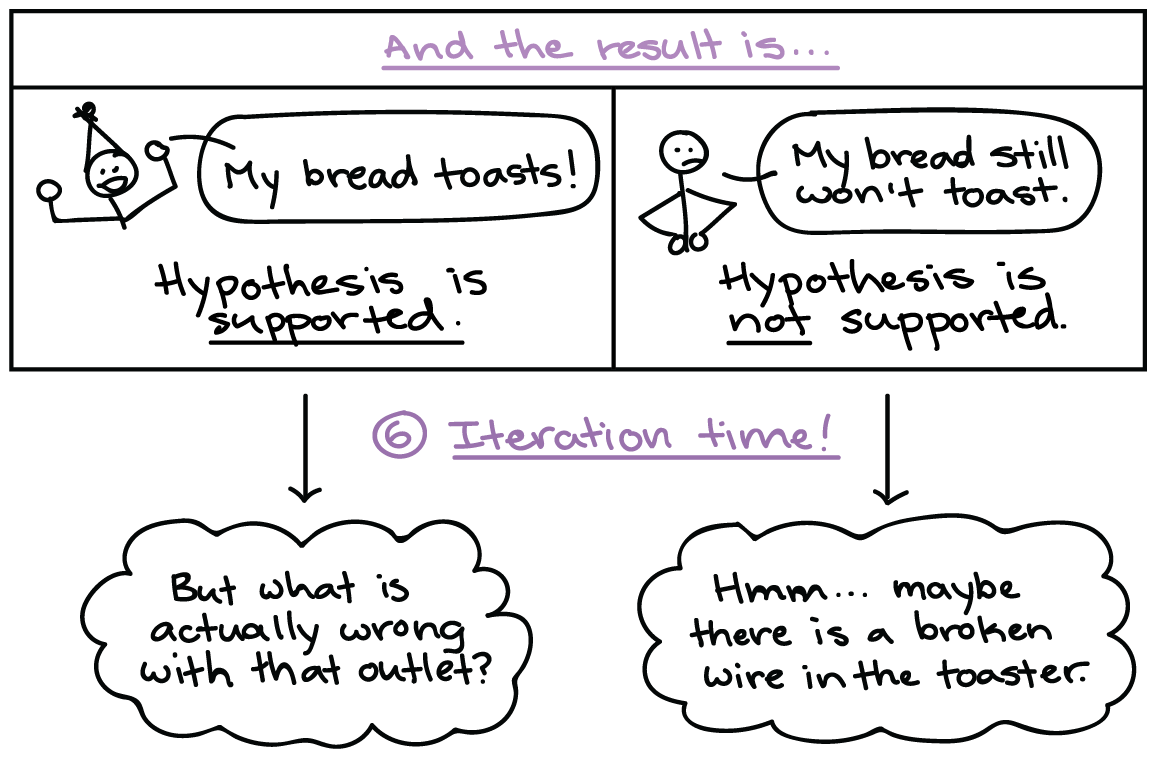 And the result is...
My bread toasts!
Hypothesis is
supported.
My bread still
won't toast.
Hypothesis is
not supported.
6 Iteration time!
But what is
actually wrong
with that outlet?
Hmm... maybe
there is a broken
wire in the toaster.